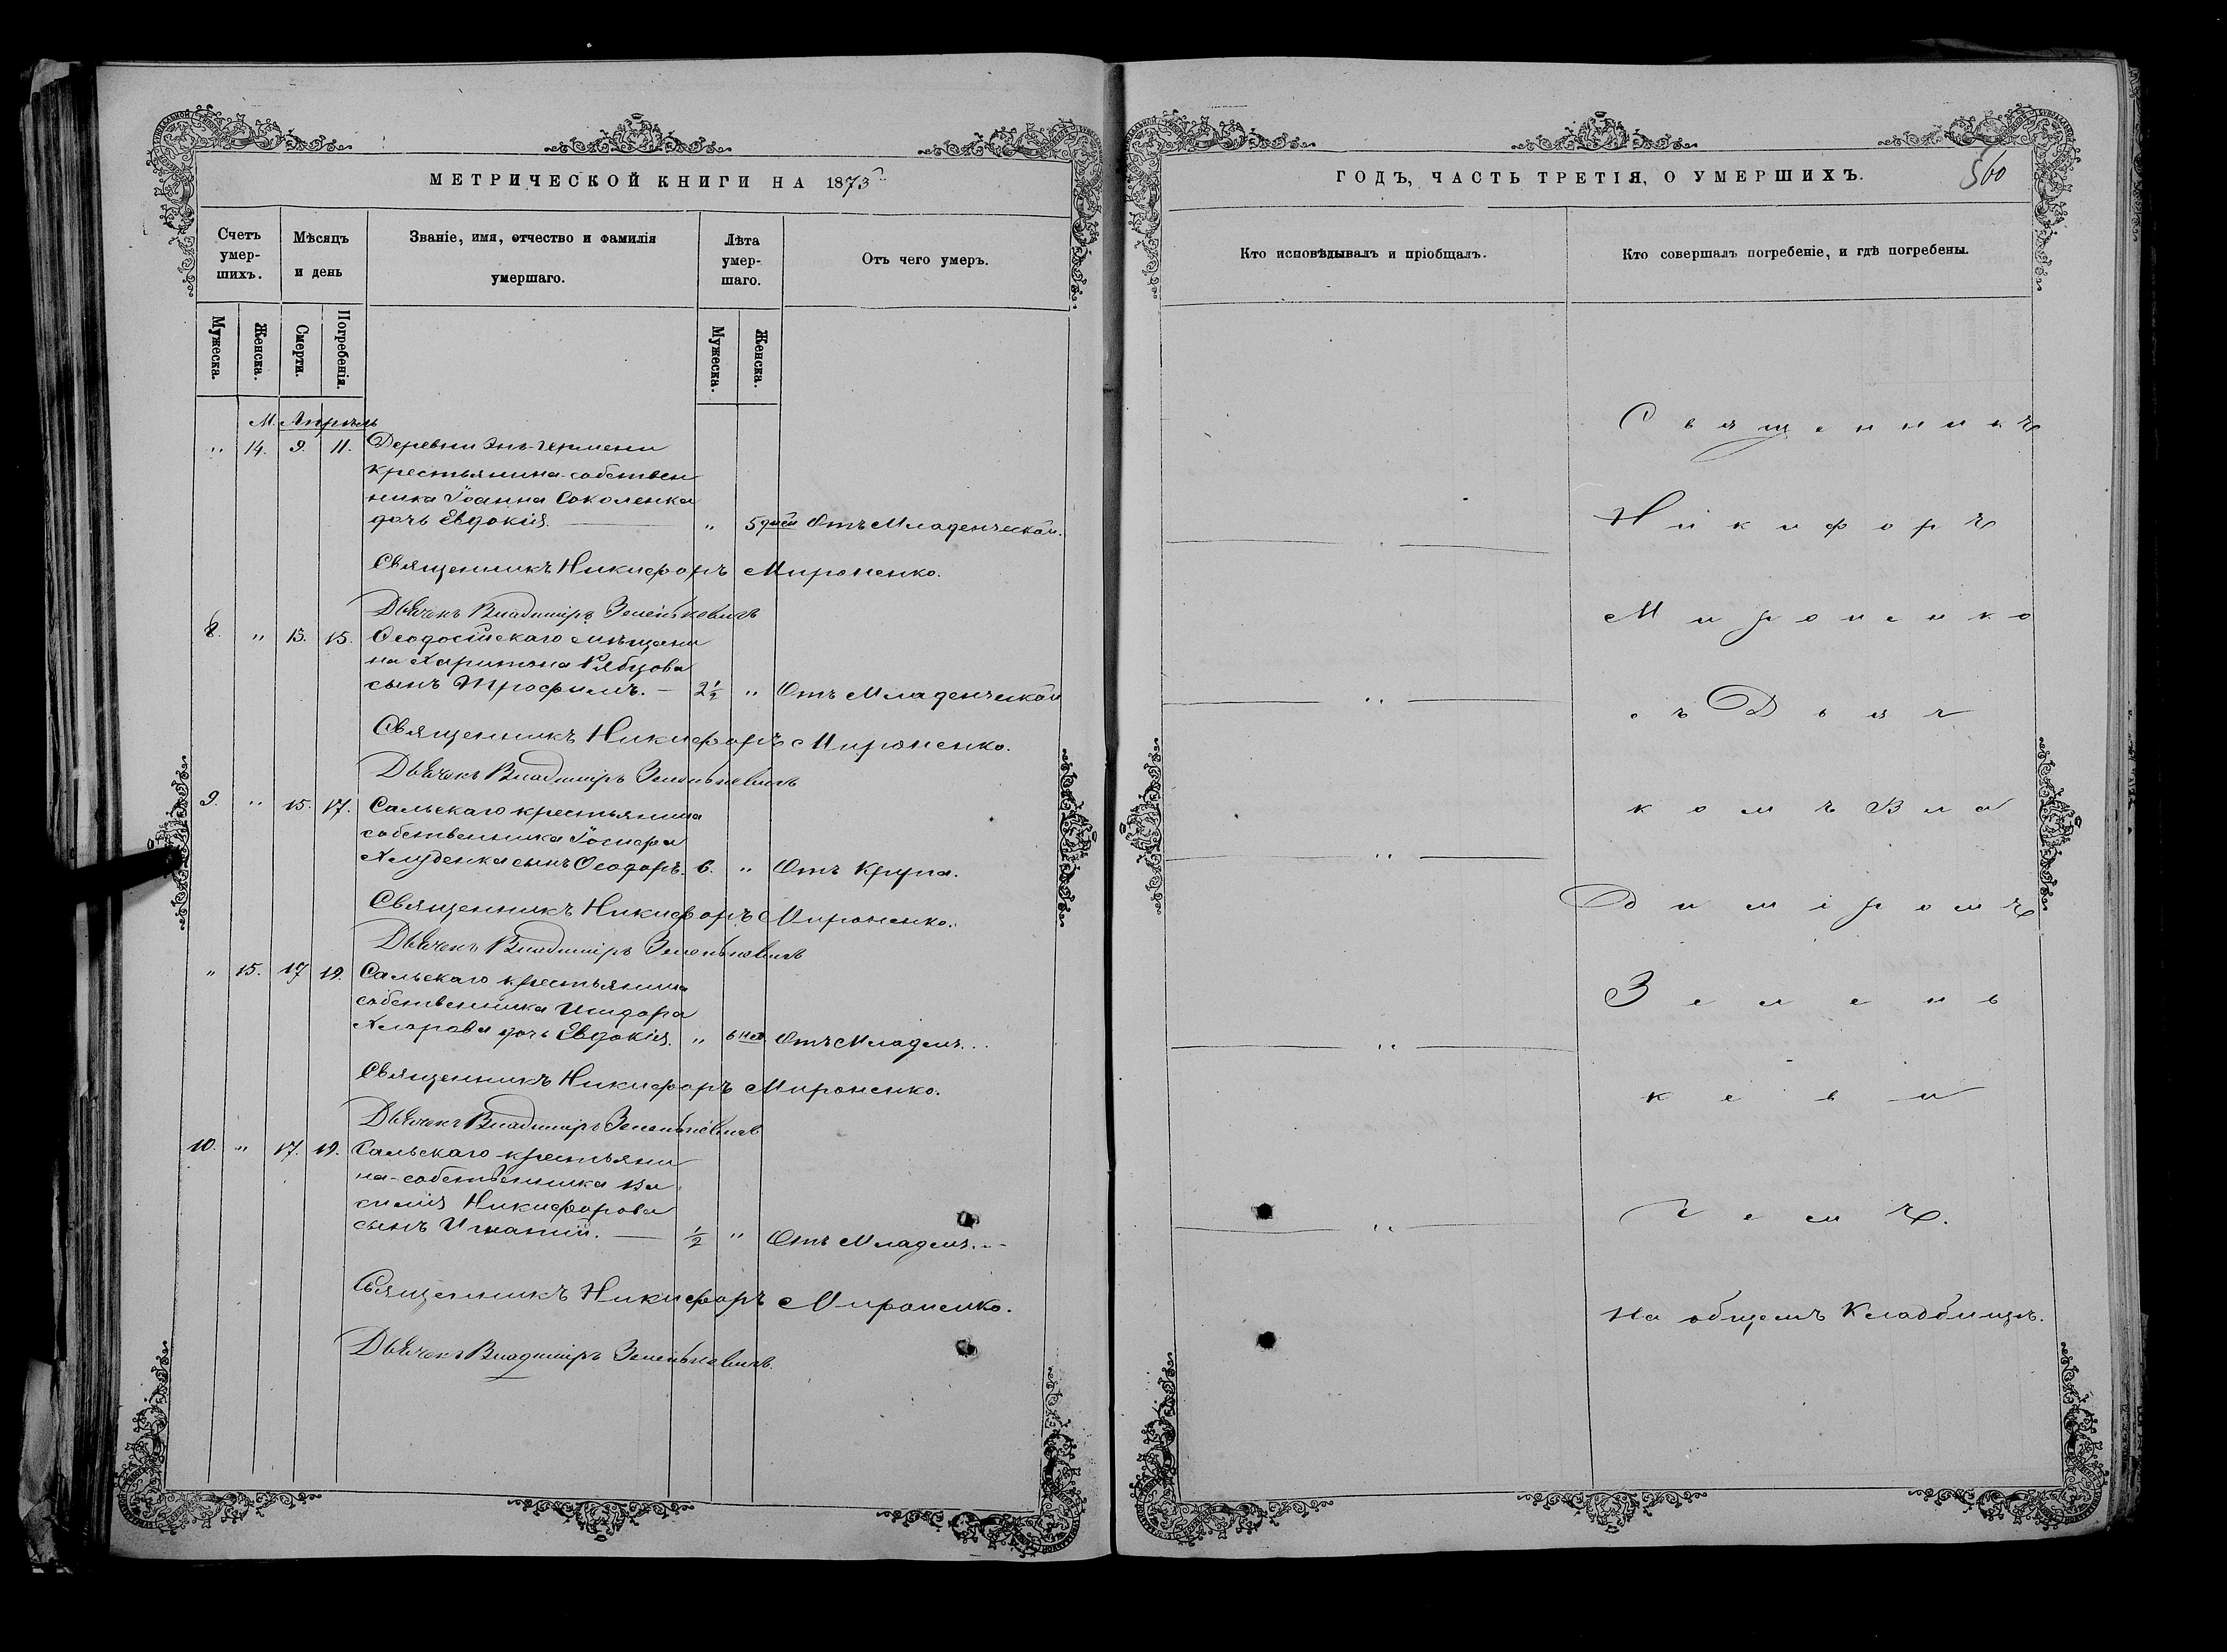 МЕТРИЧЕСКОЙ КНИГИ НА 1873й
Счетъ умер-шихъ.
Мѣсяцъ и день
Званіе, имя, отчество и фамилія умершаго.
Лѣта умер-шаго.
Отъ чего умеръ.
Мужеска. Женска. Смерти. Погребенія. Мужеска. Женска.
М. Апрѣль
" 14. 9. 11. Деревни
крестьянина-собствен
ника Іоанна Соколенка
дочь Евдокія. " 5 дней Отъ Младенческой.
Священникъ Никифоръ Мироненко.
Дьячекъ Владиміръ Зеленькевичъ
8. " 13. 15. Ѳеодосійскаго мѣщани
на Харитона Рябцова
сынъ Трофимъ. 2½ " Отъ Младенческой
Священникъ Никифоръ Мироненко.
Дьячекъ Владиміръ Зеленькевичъ
9. " 15. 17. Сальскаго крестьянина
собственника Іосифа
сынъ Ѳеодоръ. 6. " Отъ Крупа.
Священникъ Никифоръ Мироненко.
Дьячекъ Владиміръ Зеленькевичъ
" 15. 17 19. Сальскаго крестьянина
собственника Исидора
дочь Евдокія. " 6 нед. Отъ Младен...
Священникъ Никифоръ Мироненко.
Дьячекъ Владиміръ Зеленькевичъ
10. " 17. 19. Сальскаго крестьяни
на-собственника Ва
силія Никифорова
сынъ Игнатій. ½ " Отъ Младен...
Священникъ Никифоръ Мироненко.
Дьячекъ Владиміръ Зеленькевичъ.
ГОДЪ, ЧАСТЬ ТРЕТІЯ, О УМЕРШИХЪ.
560
Кто исповѣдывалъ и пріобщалъ.
Кто совершалъ погребеніе, и гдѣ погребены.
Священникъ
Никифоръ
Мироненко
съ Дьяч
комъ Вла
диміромъ
Зелень
кеви
чемъ.
На общемъ Кладбищѣ.